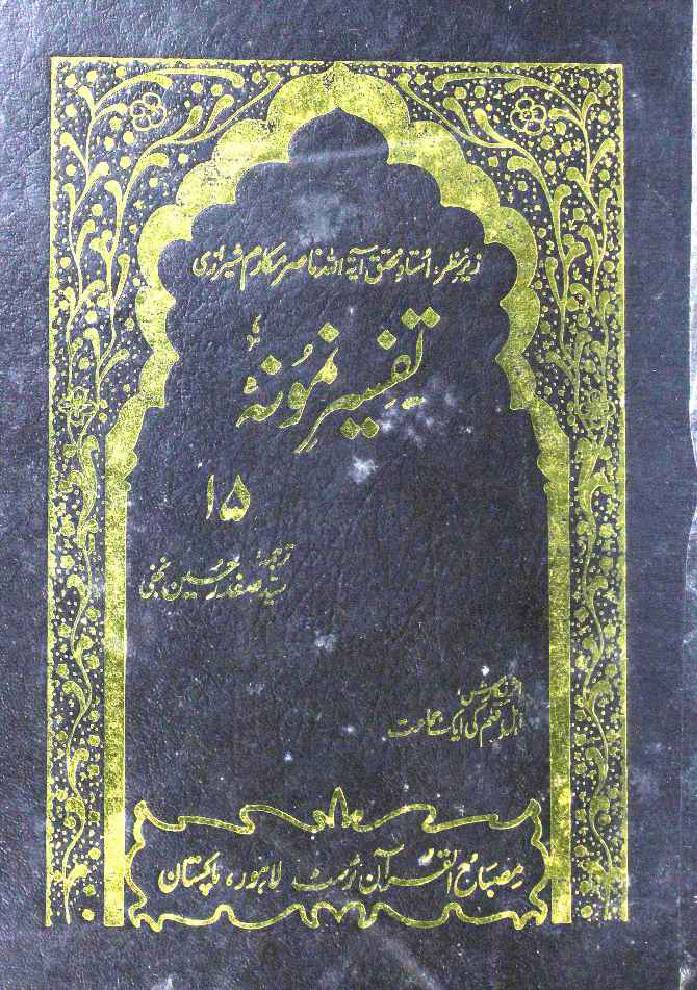 زیرِ نظر: اُستاد محقق آیۃ اللہ ناصر مکارم شیرازی
تفسیر نمونہ
۱۵
ترجمہ
سید صفدر حسین نجفی
اہلِ قلم کی ایک جماعت
مصباح القرآن ٹرسٹ لاہور، پاکستان